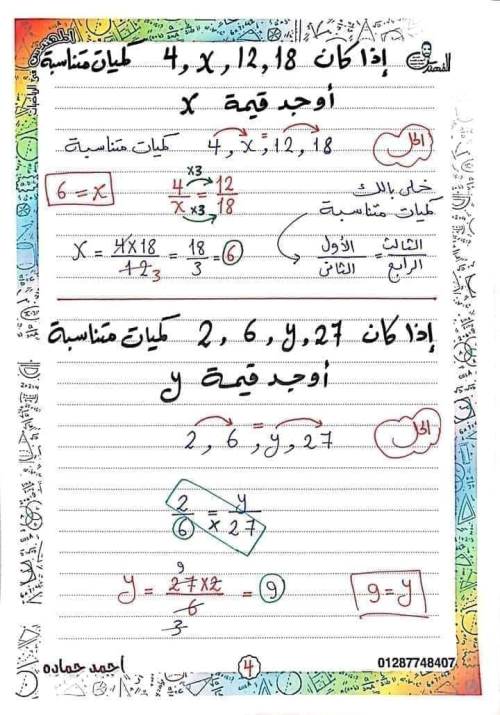 إذا كان 4 , x , 12 , 18 كميات متناسبة
أوجد قيمة x
الحل
4 , x = 12 , 18 كميات متناسبة
خلى بالك
كميات متناسبة
الأول/الثانى = الثالث/الرابع
×3
4/x = 12/18
×3
6 = x
x = 4×18/12 = 18/3 = 6
3
إذا كان 2 , 6 , y , 27 كميات متناسبة
أوجد قيمة y
الحل
2 , 6 = y , 27
2/6 = y/27
×
9
y = 27×2/6 = 9
3
9 = y
أحمد حماده
4
01287748407